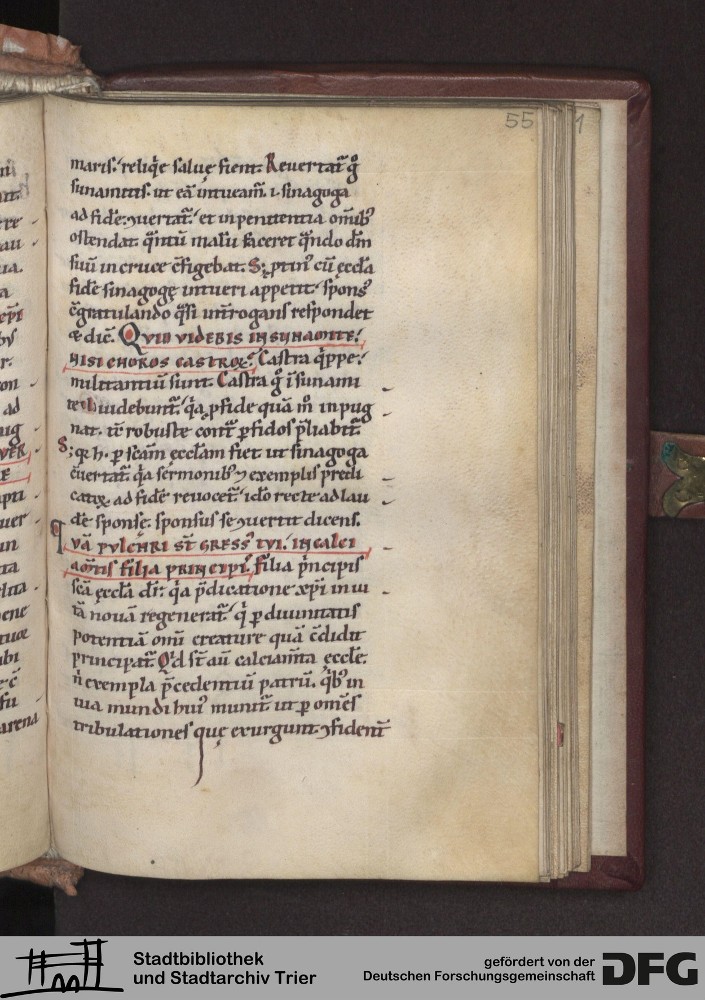 55
maris. reliq̣e saluę fient. Reuertat̄ g̊
sunamitis. ut eā intueam̄. i. sinagoga
ad fidē ꝯuertat̄. et in penitentia om̄ib;
ostendat. q̄ntū malū faceret q̄ndo dn̄m
suū in cruce c̄figebat. S; ꝓtin; cū ęccła
fidē sinagogę intueri appetit. spons;
c̄gratulando q̄si int̄rogans respondet
& dic̄. QUID VIDEBIS IN SUNAMITE.
NISI CHOROS CASTROꝜ. Castra q̄ppe.
militantiū sunt. Castra g̊ ī sunami
te uidebunt̄. q̄a ꝓ fide quā m̊ inpug
nat. tc̄ robuste cont̄ ꝑfidos p̄liabit̄.
S; q̄ h̄. ꝑ scām ęccłam fiet ut sinagoga
c̄uertat̄. q̄a sermonib; & exemplis predi
catiꝜ ad fidē reuocet̄. ido recte ad lau
dē sponsę. sponsus se ꝯuertit dicens.
QUĀ PULCHRI ST̄ GRESS; TUI. IN CALCI
AM̄TIS FILIA PRINCIPIS. Filia p̄ncipis
scā ęccła dr̄. q̄a p̄dicatione xp̄i in ui
tā nouā regenerat̄. q̄ ꝑ diuinitatis
potentiā om̄i creature quā c̄didit
principat̄. Qd st̄ aū calciam̄ta ęcclę.
n̄ exempla p̄cedentiū patrū. q̄b; in
uia mundi hui; munit̄ ut ꝑ om̄s
tribulationes quę exurgunt ꝯfident̄
Stadtbibliothek
und Stadtarchiv Trier
gefördert von der
Deutschen Forschungsgemeinschaft
DFG